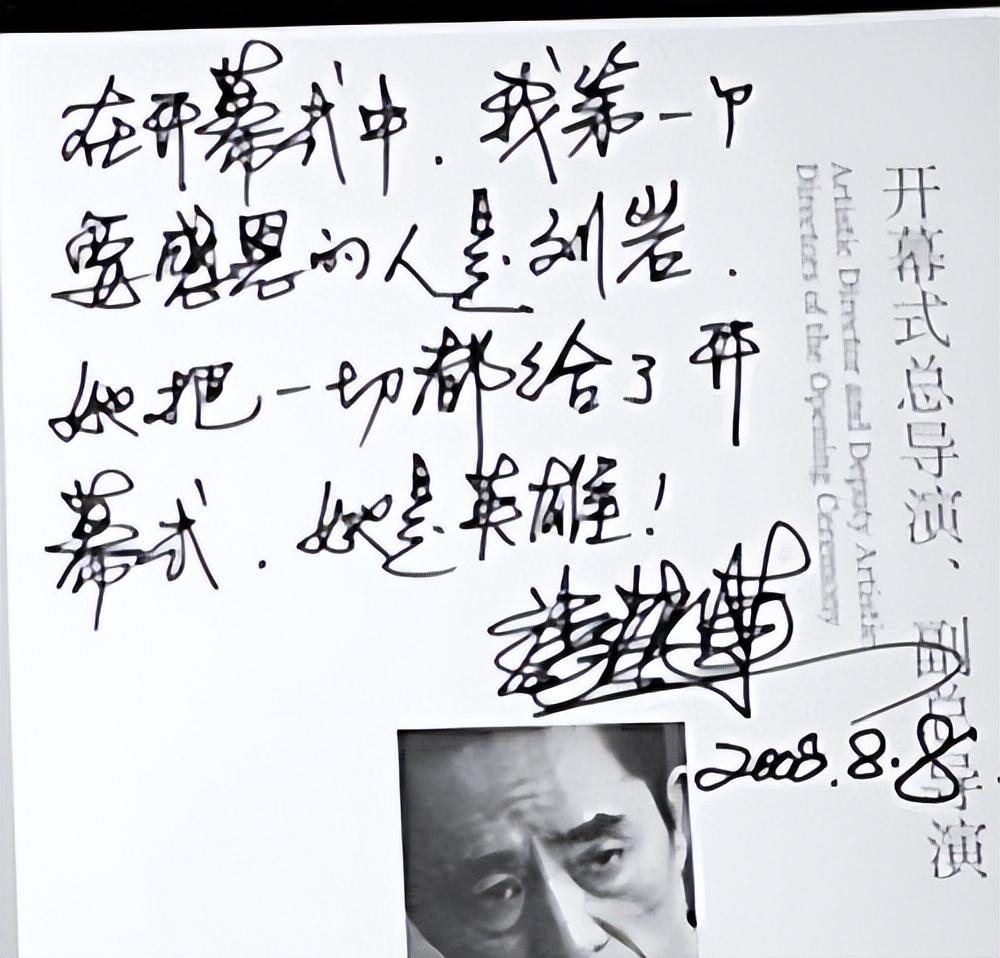 在开幕式中.我第一个
要感恩的人是刘岩.
她把一切都给了开
幕式.她是英雄!
2008.8.8
开幕式总导演、副总导演
Artistic Director and Deputy Artistic
Directors of the Opening Ceremony